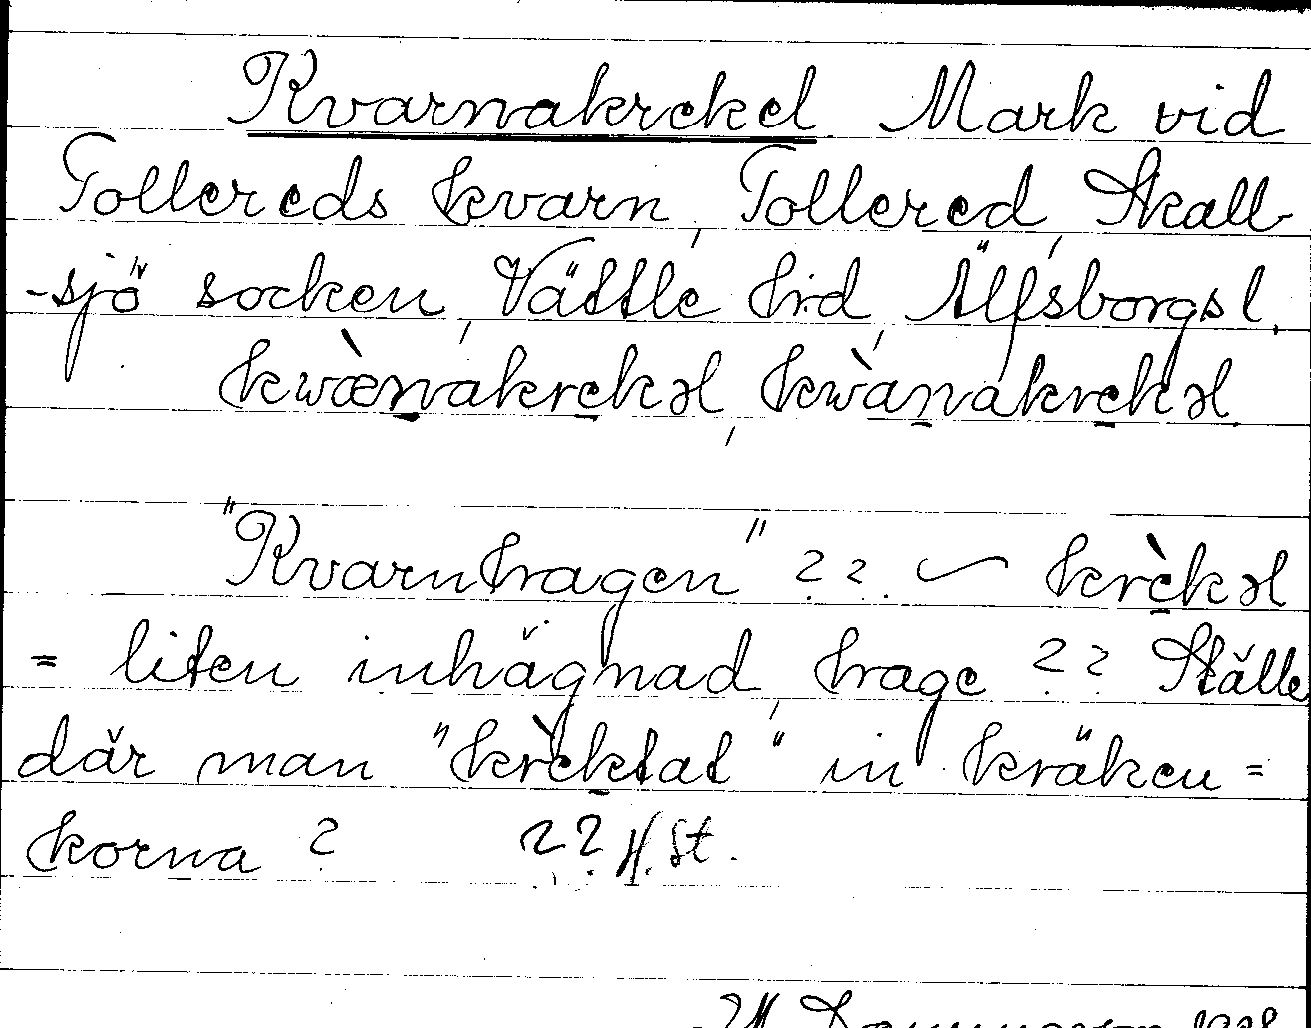 Kvarnakrekel Mark vid
Tollereds kvarn, Tollered, Skall-
-sjö socken, Vättle hrd, Älfsborgs l.
kwæ̀nakrekəl, kwànakrekəl
"Kvarnhagen" ?? ~ krèkəl
= liten inhägnad, hage ?? Ställe
där man "krèktat" in kräken =
korna ? ?? H. St.